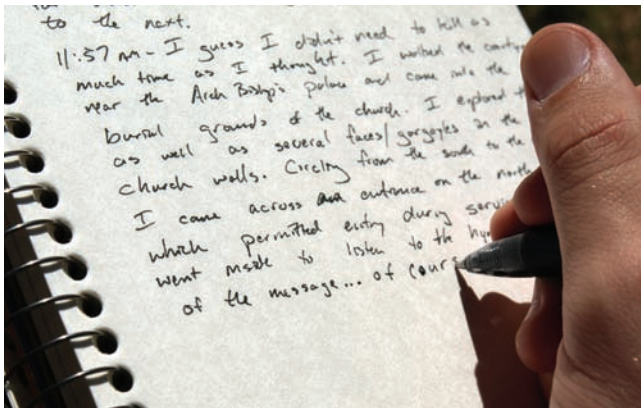 to the next.
11:57 AM - I guess I didn't need to kill as
much time as I thought. I walked the
near the Arch Bishop's palace and came onto the
burial grounds of the church. I explored
as well as several faces/gargoyles in the
church walls. Circling from the south to the
I came across an entrance on the north
which permitted entry during
went inside to listen to the
of the message... of cours